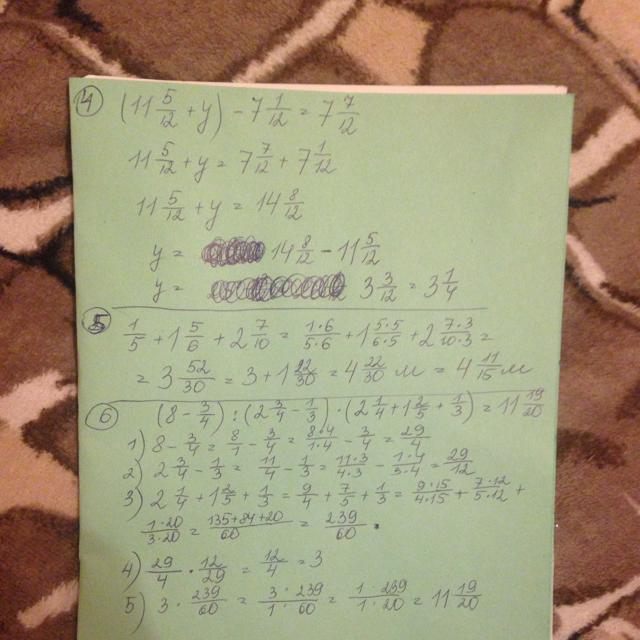 4 (11 5/12 + y) - 7 1/12 = 7 7/12
11 5/12 + y = 7 7/12 + 7 1/12
11 5/12 + y = 14 8/12
y = 14 8/12 - 11 5/12
y = 3 3/12 = 3 1/4
5 1/5 + 1 5/6 + 2 7/10 = 1·6/5·6 + 1 5·5/6·5 + 2 7·3/10·3 =
= 3 52/30 = 3 + 1 22/30 = 4 22/30 м = 4 11/15 м
6 (8 - 3/4) : (2 3/4 - 1/3) · (2 1/4 + 1 2/5 + 1/3) = 11 19/20
1) 8 - 3/4 = 8/1 - 3/4 = 8·4/1·4 - 3/4 = 29/4
2) 2 3/4 - 1/3 = 11/4 - 1/3 = 11·3/4·3 - 1·4/3·4 = 29/12
3) 2 1/4 + 1 2/5 + 1/3 = 9/4 + 7/5 + 1/3 = 9·15/4·15 + 7·12/5·12 +
1·20/3·20 = 135+84+20/60 = 239/60
4) 29/4 · 12/29 = 12/4 = 3
5) 3 · 239/60 = 3·239/1·60 = 1·239/1·20 = 11 19/20